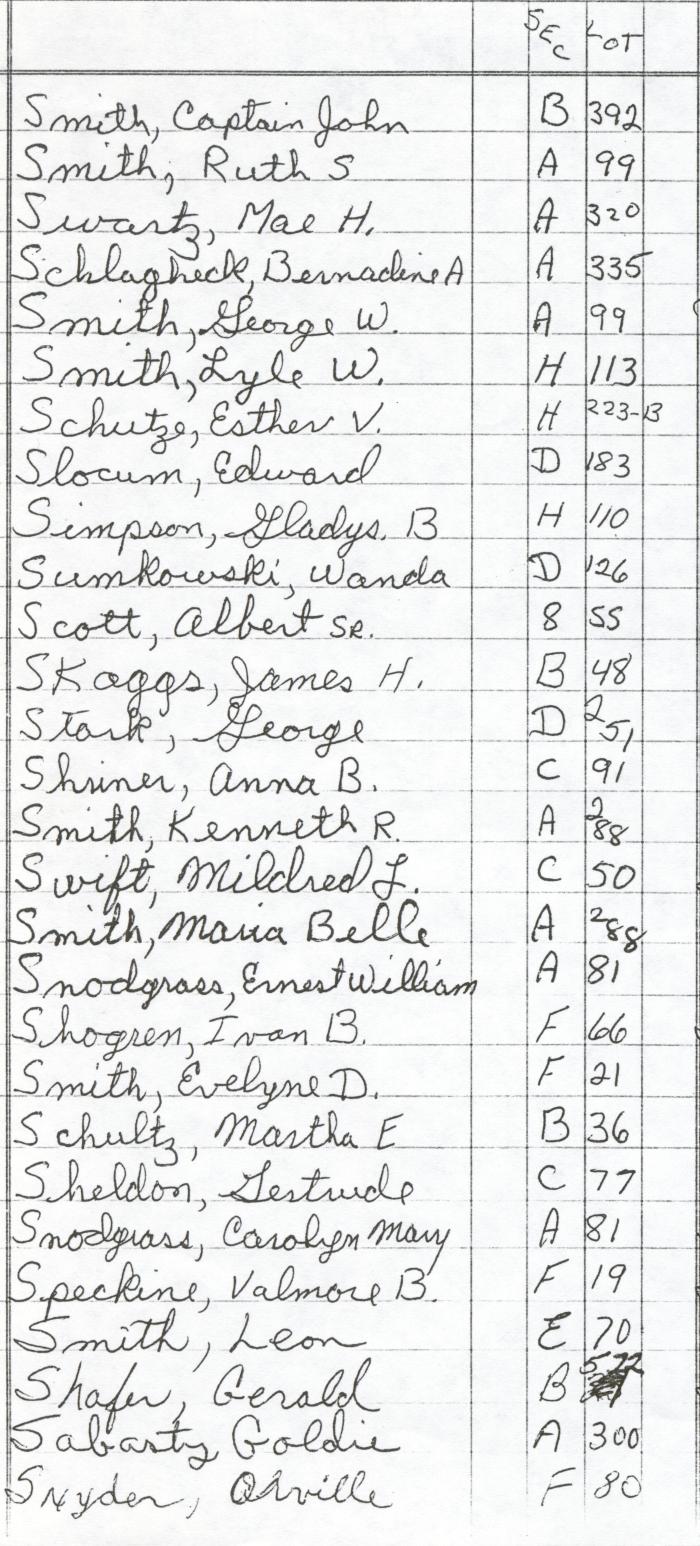 SEC LOT
Smith, Captain John B 392
Smith, Ruth S A 99
Swartz, Mae H. A 320
Schlagheck, Bernadine A A 335
Smith, George W. A 99
Smith, Lyle W. H 113
Schutze, Esther V. H 223-B
Slocum, Edward D 183
Simpson, Gladys. B H 110
Sumkowski, Wanda D 126
Scott, Albert SR. 8 55
Skaggs, James H. B 48
Stark, George D 251
Shriner, Anna B. C 91
Smith, Kenneth R. A 288
Swift, Mildred L. C 50
Smith, Maria Belle A 288
Snodgrass, Ernest William A 81
Shogren, Ivan B. F 66
Smith, Evelyne D. F 21
Schultz, Martha E B 36
Sheldon, Gertrude C 77
Snodgrass, Carolyn Mary A 81
Speckine, Valmore B. F 19
Smith, Leon E 70
Shafer, Gerald B 572
Sabasty, Goldie A 300
Snyder, Orville F 80